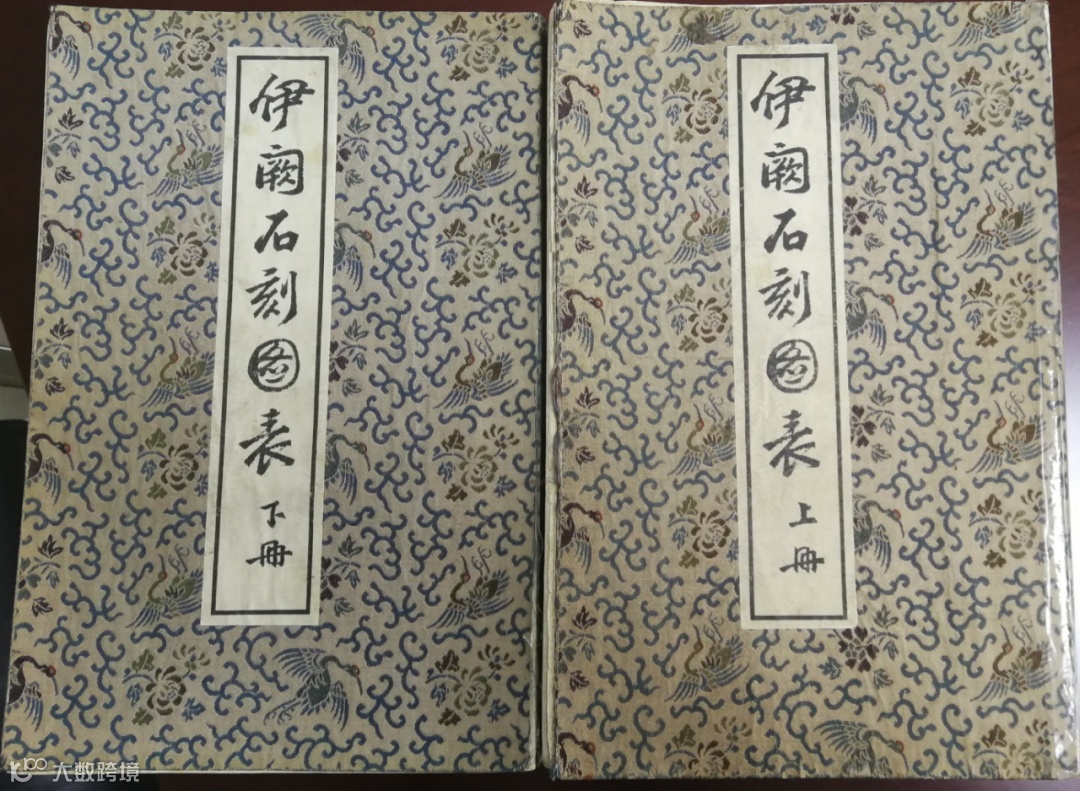 伊阙石刻图表
上冊
伊阙石刻图表
下冊
大数跨境